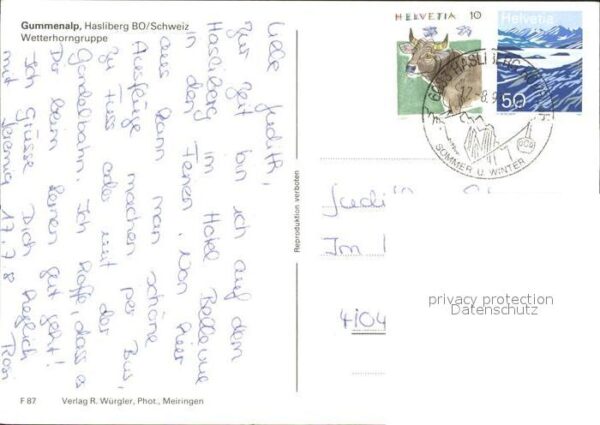 Gummenalp, Hasliberg BO/Schweiz
Wetterhorngruppe
Liebe Judith,
zur Zeit bin ich auf dem
Hasliberg im Hotel Bellevue
in den Ferien. Von hier
aus kann man schöne
Ausflüge machen per Bus,
zu Fuss oder mit der
Gondelbahn. Ich hoffe, dass es
Dir beim lernen gut geht!
Ich grüsse Dich herzlich
mit Jeremia 17.7 & Rosi
F 87 Verlag R. Würgler, Phot., Meiringen
Reproduktion verboten
HELVETIA 10
Helvetia
50
HASLIBERG
SOMMER U. WINTER
Judith
Im
4104
privacy protection
Datenschutz